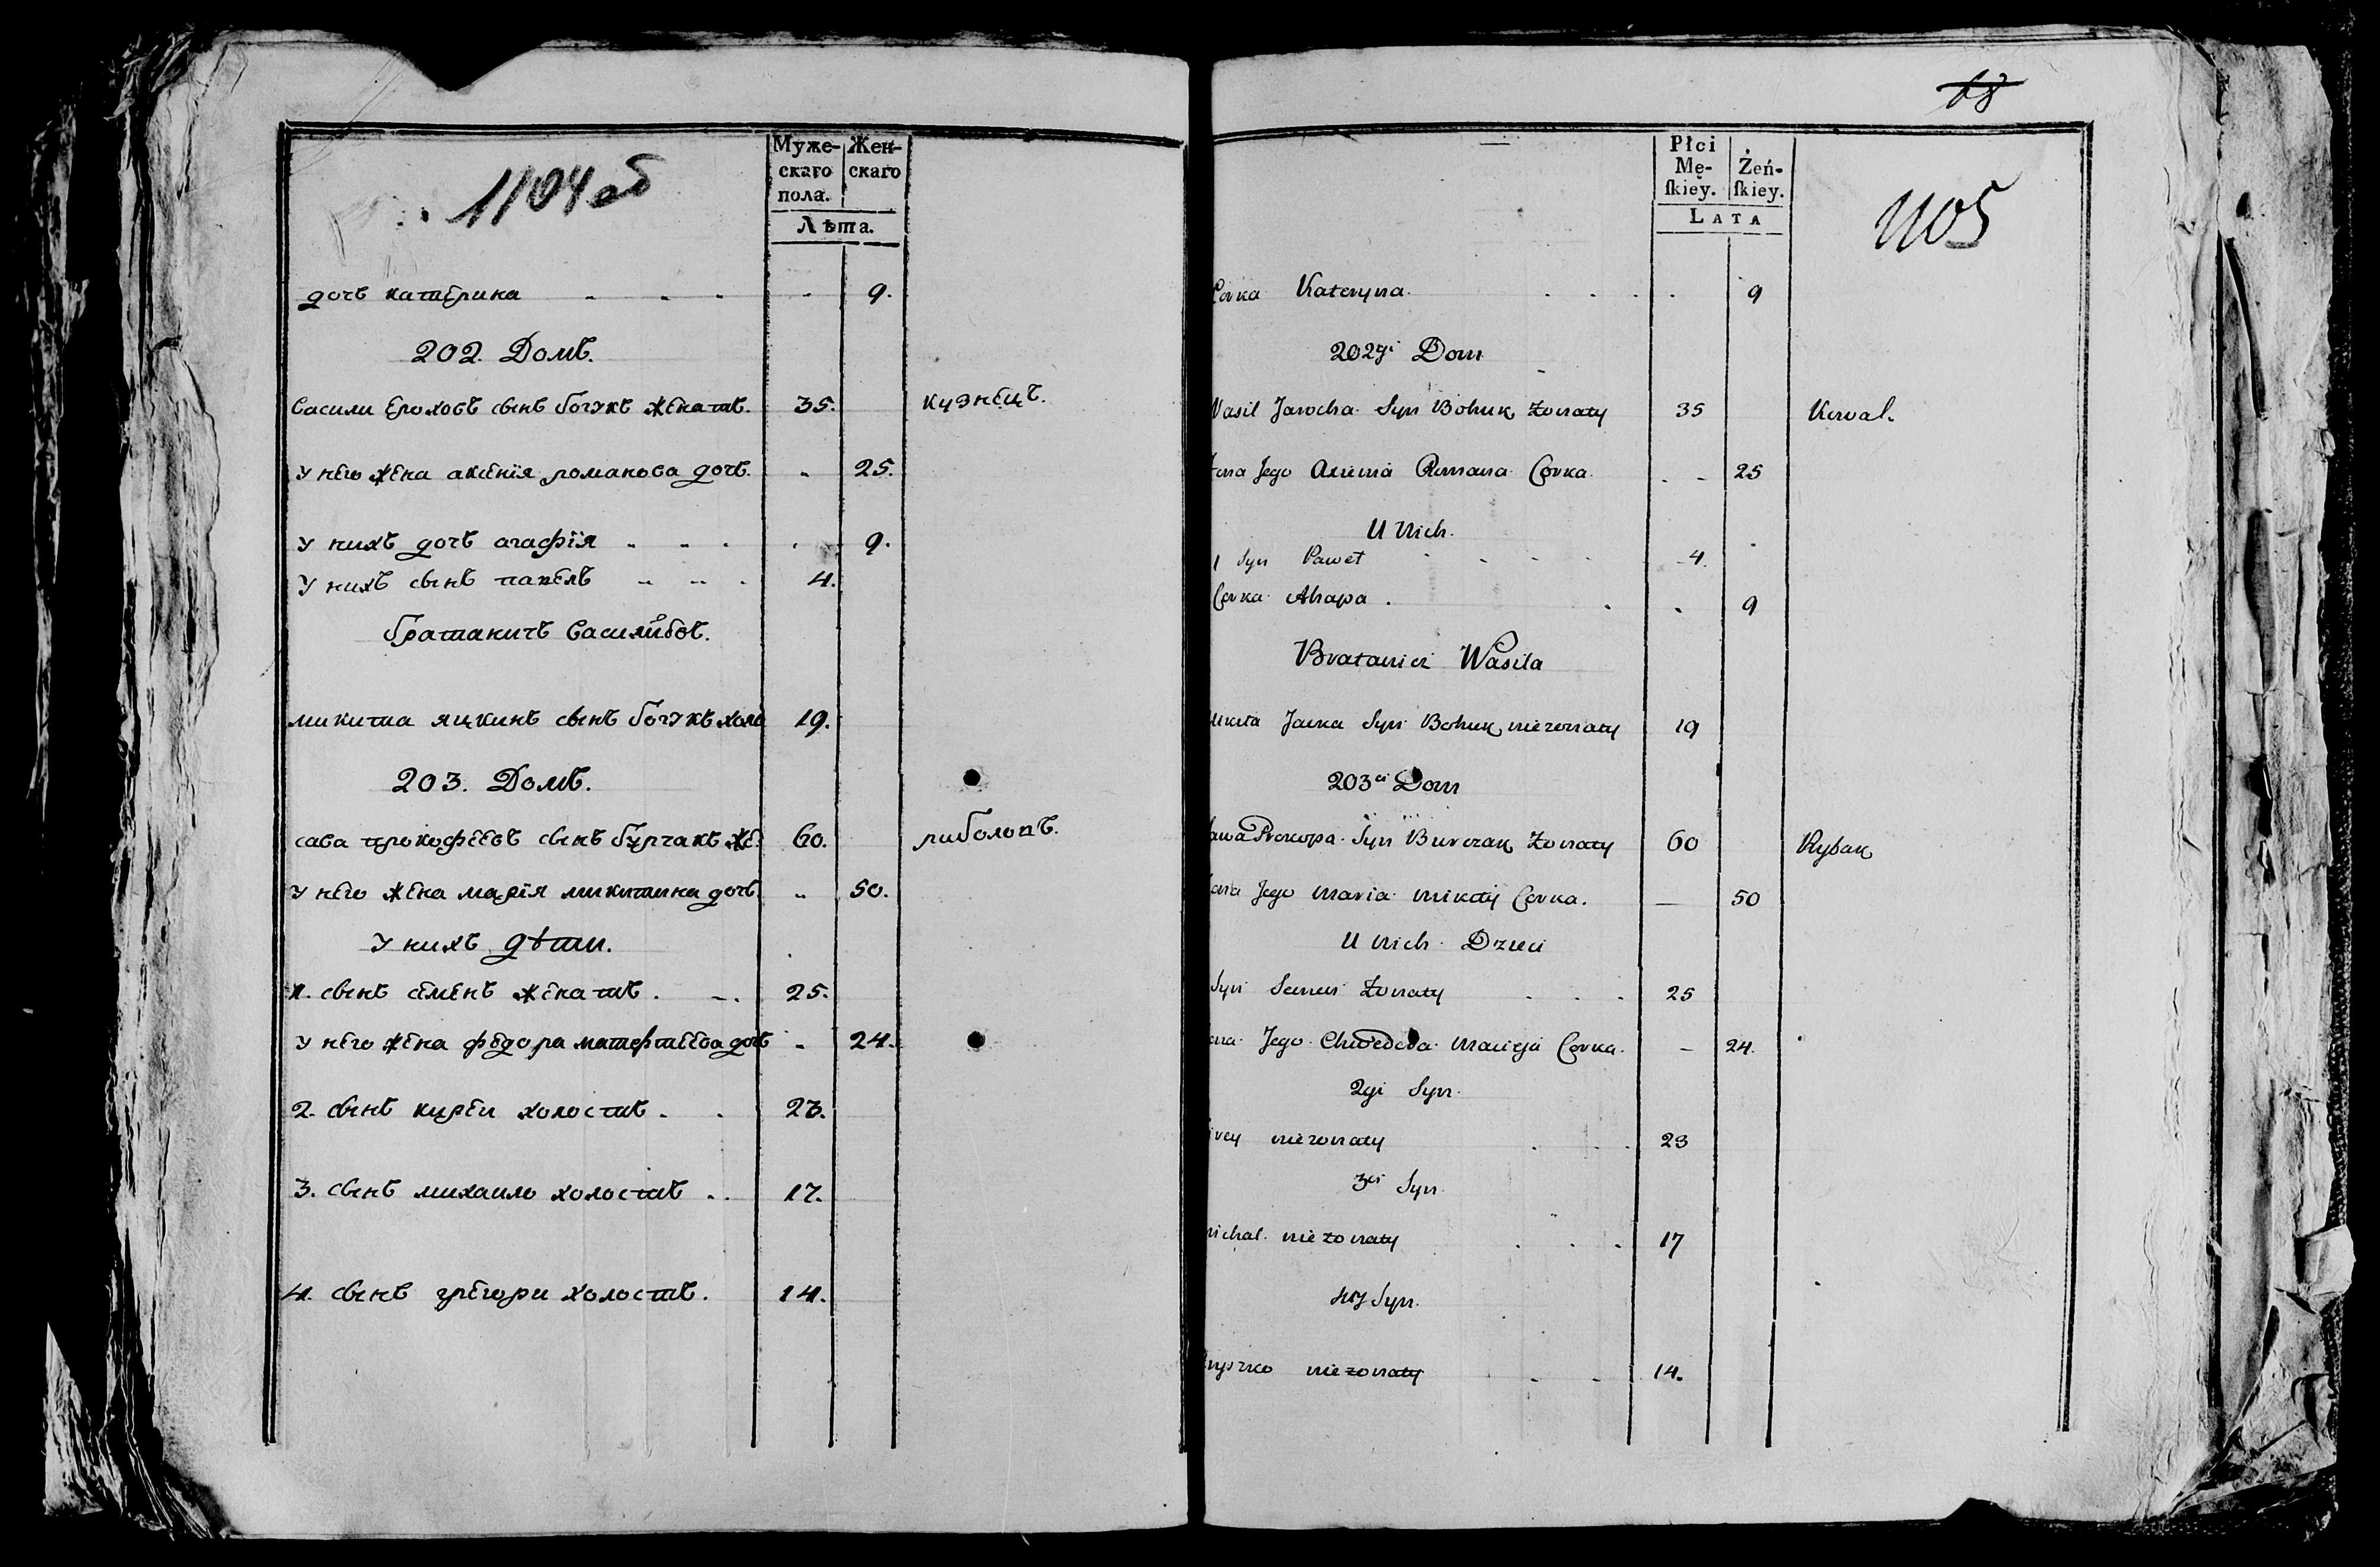 1104 об
Муже-
скаго
пола.
Жен-
скаго
Лѣта.
дочь катерина 9.
202. Домъ.
васили ероховъ сынъ богукъ женатъ. 35. кузнецъ.
у него жена аксенія романова дочь. 25.
у нихъ дочь агафія 9.
у нихъ сынъ павелъ 4.
братаничъ василивъ.
микита яцкинъ сынъ богукъ холо 19.
203. Домъ.
сава прокофеевъ сынъ бурчакъ же. 60. риболовъ.
у него жена марія микитина дочь 50.
у нихъ дѣти.
1. сынъ семенъ женатъ. 25.
у него жена федора матфтеева дочь 24.
2. сынъ кирей холостъ. 23.
3. сынъ михаило холостъ 17.
4. сынъ грегори холостъ. 14.
18
Płci
Mę-
ſkiey.
Żeń-
ſkiey.
LATA
1105
Corka Kateryna. 9
202gi Dom
Wasil Jarocha Syn Bohuk żonaty 35 Kowal.
żona Jego Axienia Romana Corka. 25
U Nich.
1 Syn Paweł 4.
Corka Ahapa. 9
Bratanicz Wasila
Mikita Jacka Syn Bohuk nieżonaty 19
203ci Dom
Sawa Prokopa Syn Burczak żonaty 60 Rybak
żona Jego Maria Mikity Corka. 50
U nich Dzieci
Syn Semen żonaty 25
żona Jego Chwedora Macieja Corka. 24.
2gi Syn.
Kirey nieżonaty 23
3ci Syn.
Michał. nieżonaty 17
4ty Syn.
Hryszko nieżonaty 14.